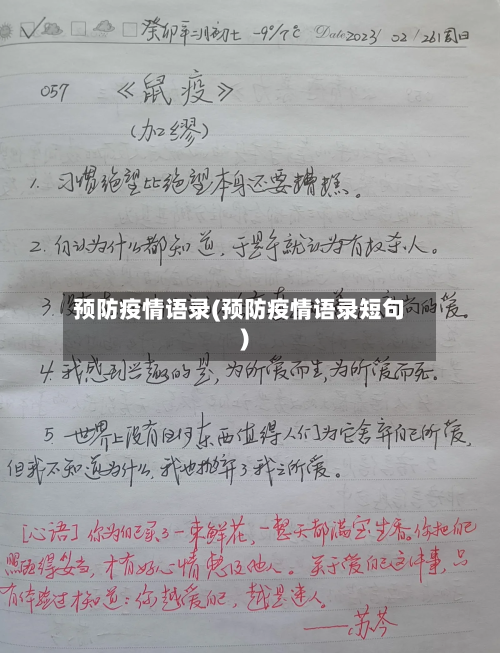 癸卯年二月初七 -9°/7℃ Date 2023/ 02 /26 周日
057 《鼠疫》
(加缪)
1. 习惯绝望比绝望本身还要糟糕。
2. 自认为什么都知道,于是乎就认为有权杀人。
3. 没 尚的爱。
预防疫情语录(预防疫情语录短句
)
4. 我感到兴趣的是,为所爱而生,为所爱而死。
5. 世界上没有任何东西值得人们为它舍弃自己所爱,
但我不知道为什么,我也抛弃了我之所爱。
[心语] 你为自己买了一束鲜花,一整天都满室生香。你把自己
照顾得妥当,才有好心情惠及他人。关于爱自己这件事,只
有体验过才知道:你越爱自己,越是迷人。
——苏芩